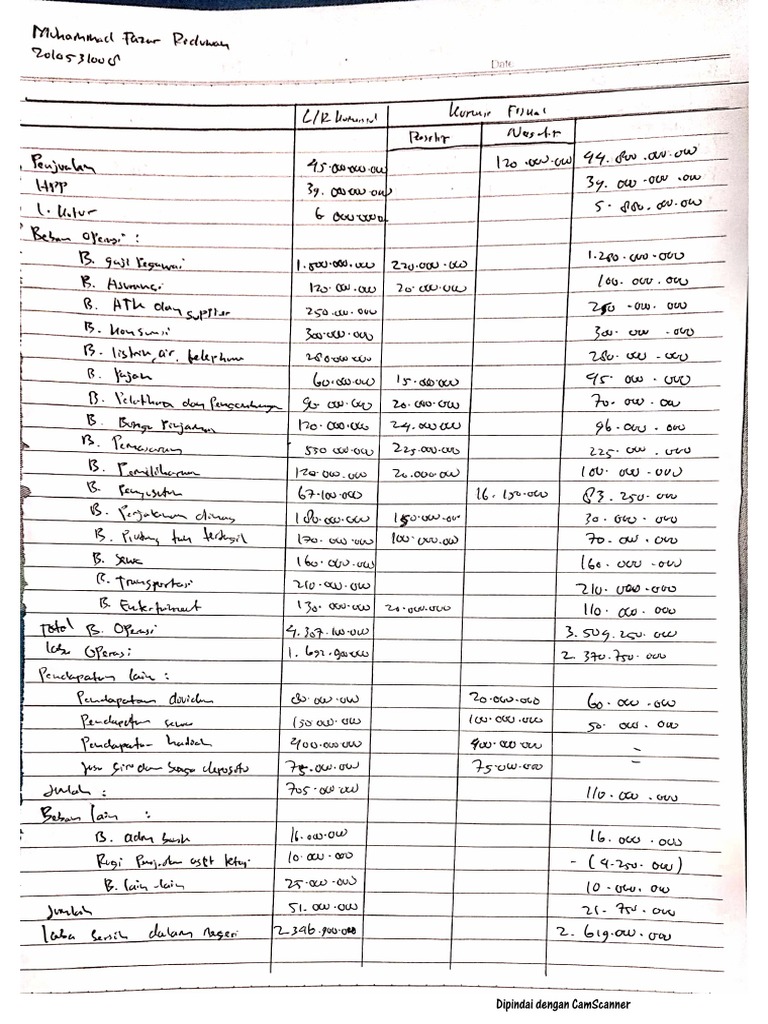 Muhammad Fazar Riduwan
Date
L/R Komersial Koreksi Fiskal
Positif Negatif
Penjualan 45.000.000.000 120.000.000 44.800.000.000
HPP 39.000.000.000 39.000.000.000
L. Kotor 6.000.000.000 5.880.000.000
Beban Operasi :
B. gaji pegawai 1.500.000.000 220.000.000 1.280.000.000
B. Asuransi 120.000.000 20.000.000 100.000.000
B. ATK dan supplier 250.000.000 250.000.000
B. konsumsi 300.000.000 300.000.000
B. listrik, air, telephone 280.000.000 280.000.000
B. Pajak 60.000.000 15.000.000 45.000.000
B. Pelatihan dan Pengembangan 90.000.000 20.000.000 70.000.000
B. Bunga Pinjaman 120.000.000 24.000.000 96.000.000
B. Pemasaran 550.000.000 225.000.000 225.000.000
B. Pemeliharaan 120.000.000 20.000.000 100.000.000
B. Penyusutan 67.100.000 16.150.000 83.250.000
B. Perjalanan dinas 180.000.000 150.000.000 30.000.000
B. Piutang tak tertagih 170.000.000 100.000.000 70.000.000
B. Sewa 160.000.000 160.000.000
B. Transportasi 210.000.000 210.000.000
B. Entertainment 130.000.000 20.000.000 110.000.000
Total B. Operasi 4.307.100.000 3.509.250.000
laba Operasi 1.692.900.000 2.370.750.000
Pendapatan lain :
Pendapatan deviden 80.000.000 20.000.000 60.000.000
Pendapatan sewa 150.000.000 100.000.000 50.000.000
Pendapatan hadiah 400.000.000 400.000.000 -
Jasa Giro dan bunga deposito 75.000.000 75.000.000 -
Jumlah : 705.000.000 110.000.000
Beban lain :
B. adm bank 16.000.000 16.000.000
Rugi Penj. dan aset tetap 10.000.000 - (4.250.000)
B. lain-lain 25.000.000 10.000.000
Jumlah 51.000.000 21.750.000
laba bersih dalam negeri 2.346.900.000 2.619.000.000
Dipindai dengan CamScanner